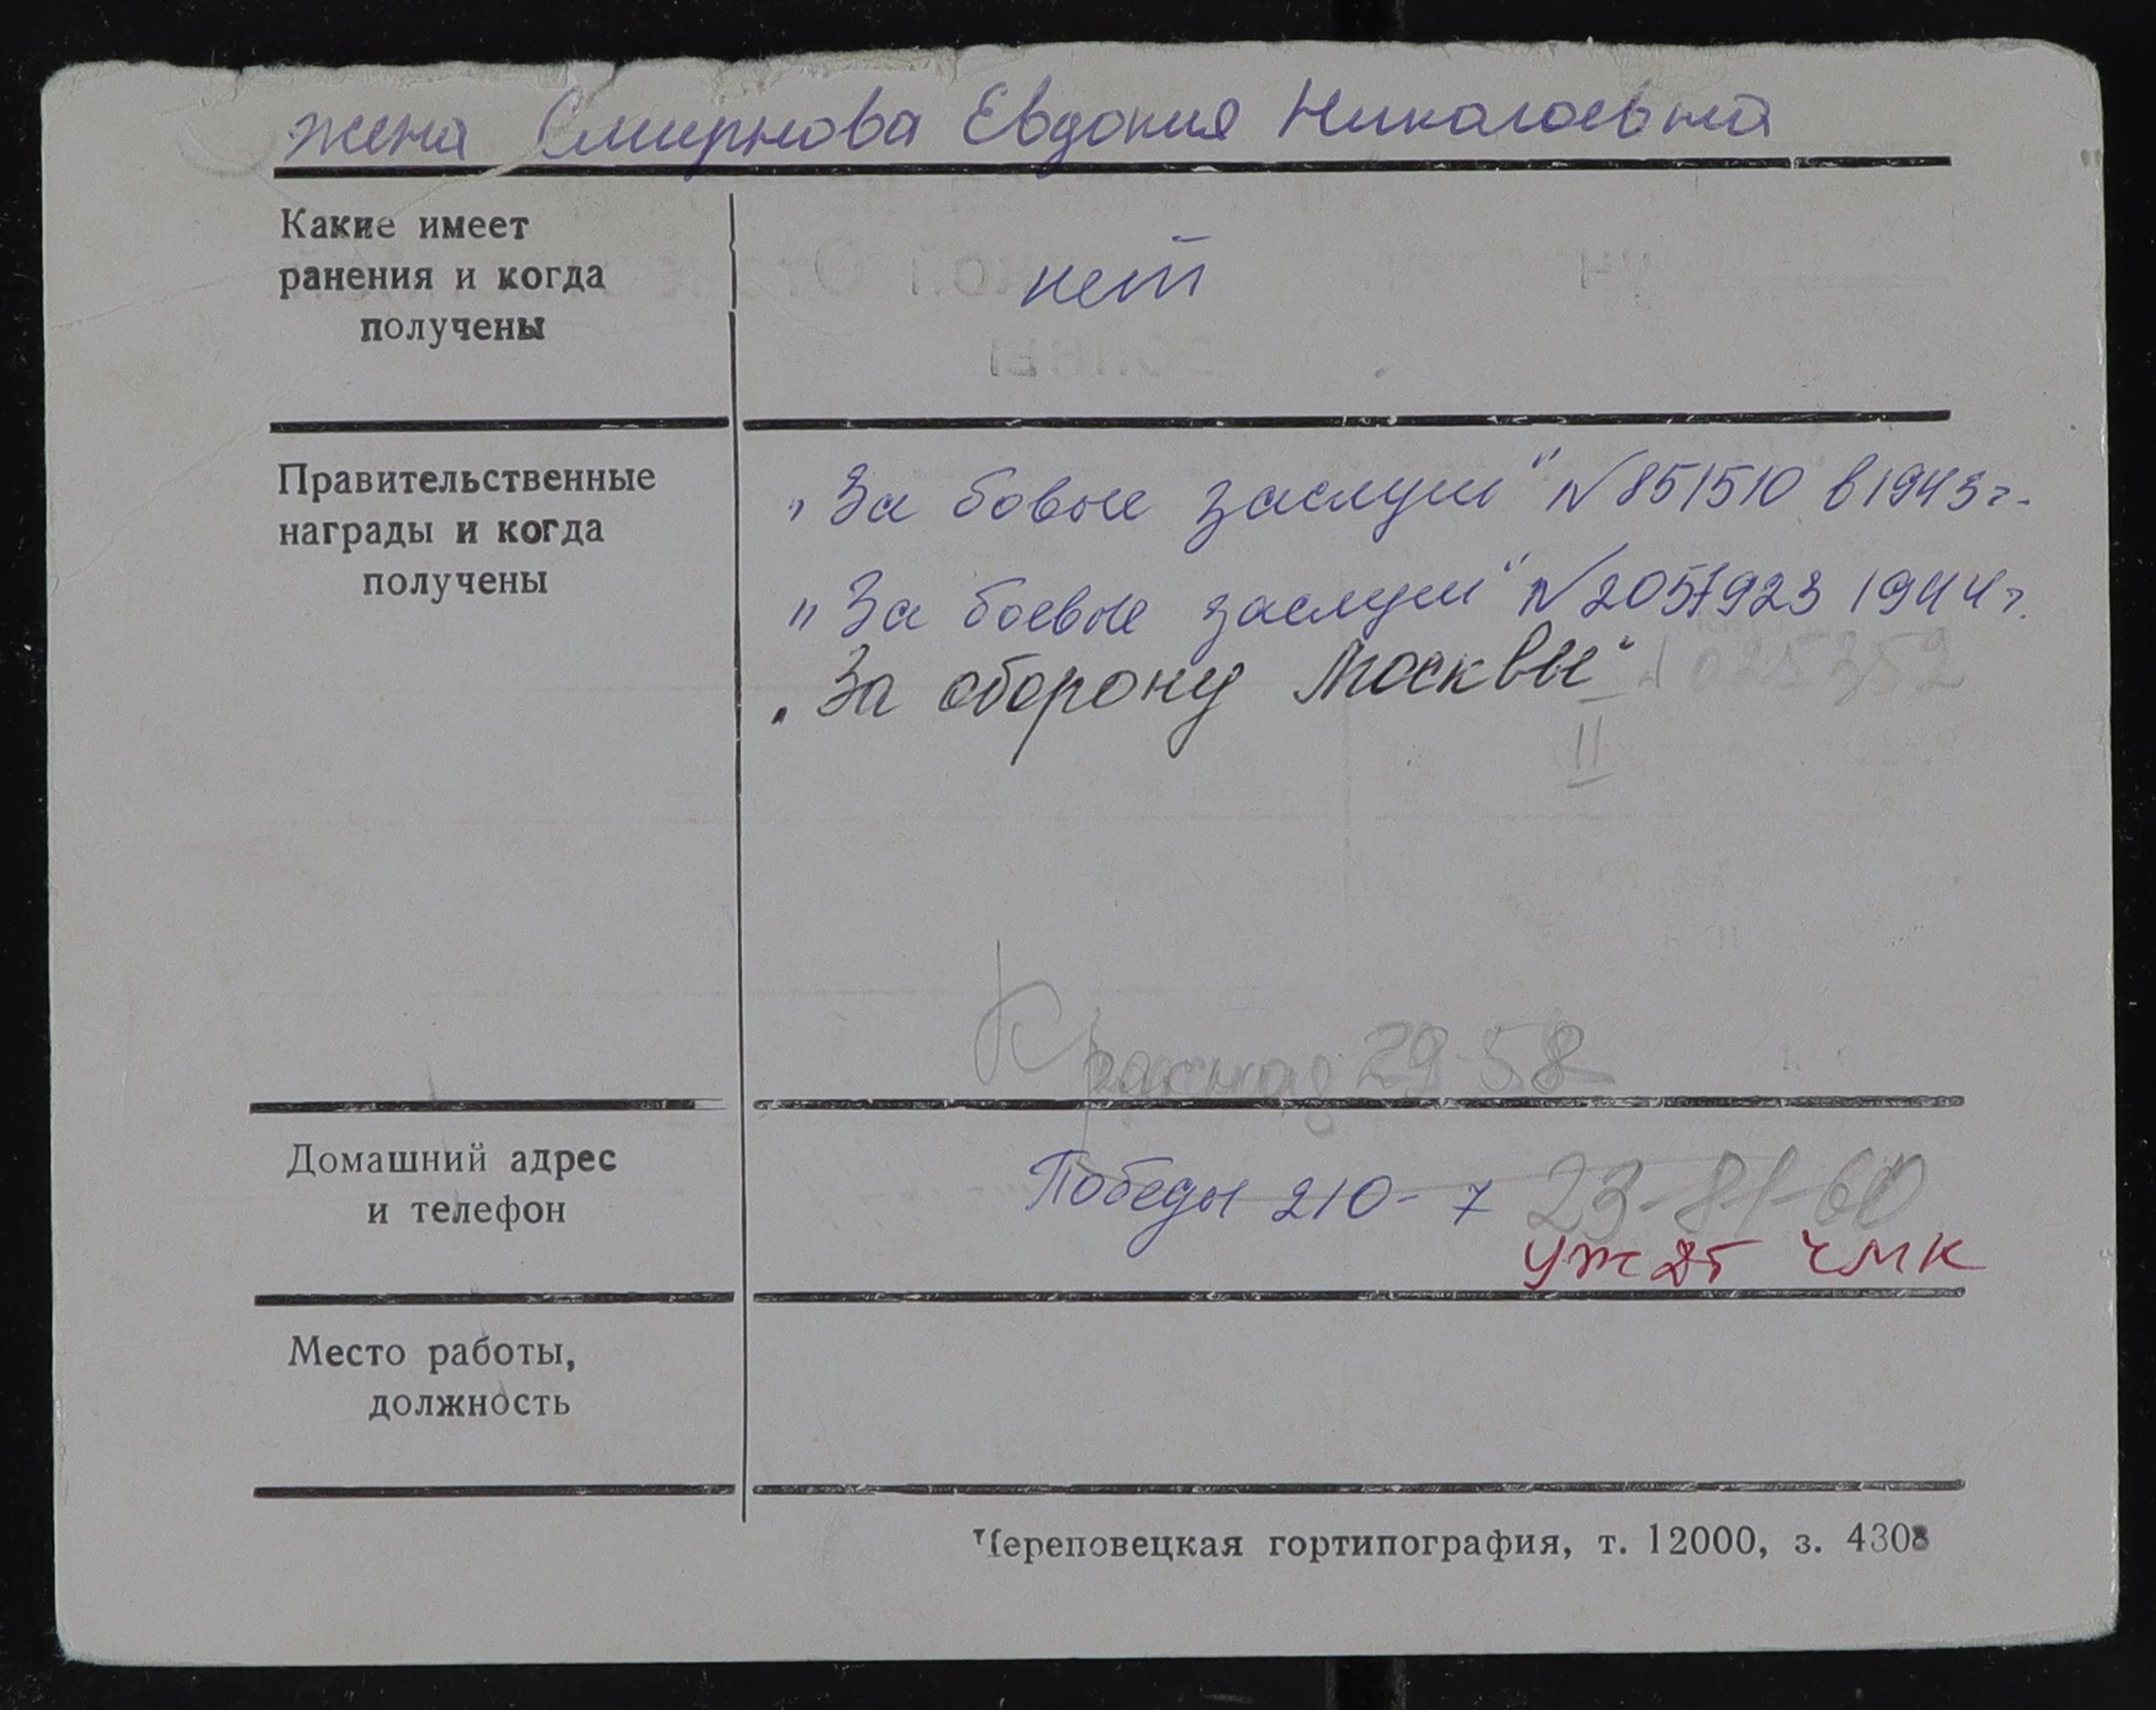 жена Смирнова Евдокия Николаевна
Какие имеет
ранения и когда
получены
нет
Правительственные
награды и когда
получены
„За бовые заслуги“ №851510 в 1943г.
„За боевые заслуги“ №2057923 1944г.
„За оборону Москвы“ 025352
II
29-58
Домашний адрес
и телефон
Победы 210-7 23-81-60
УЖДТ ЧМК
Место работы,
должность
Череповецкая гортипография, т. 12000, з. 4308